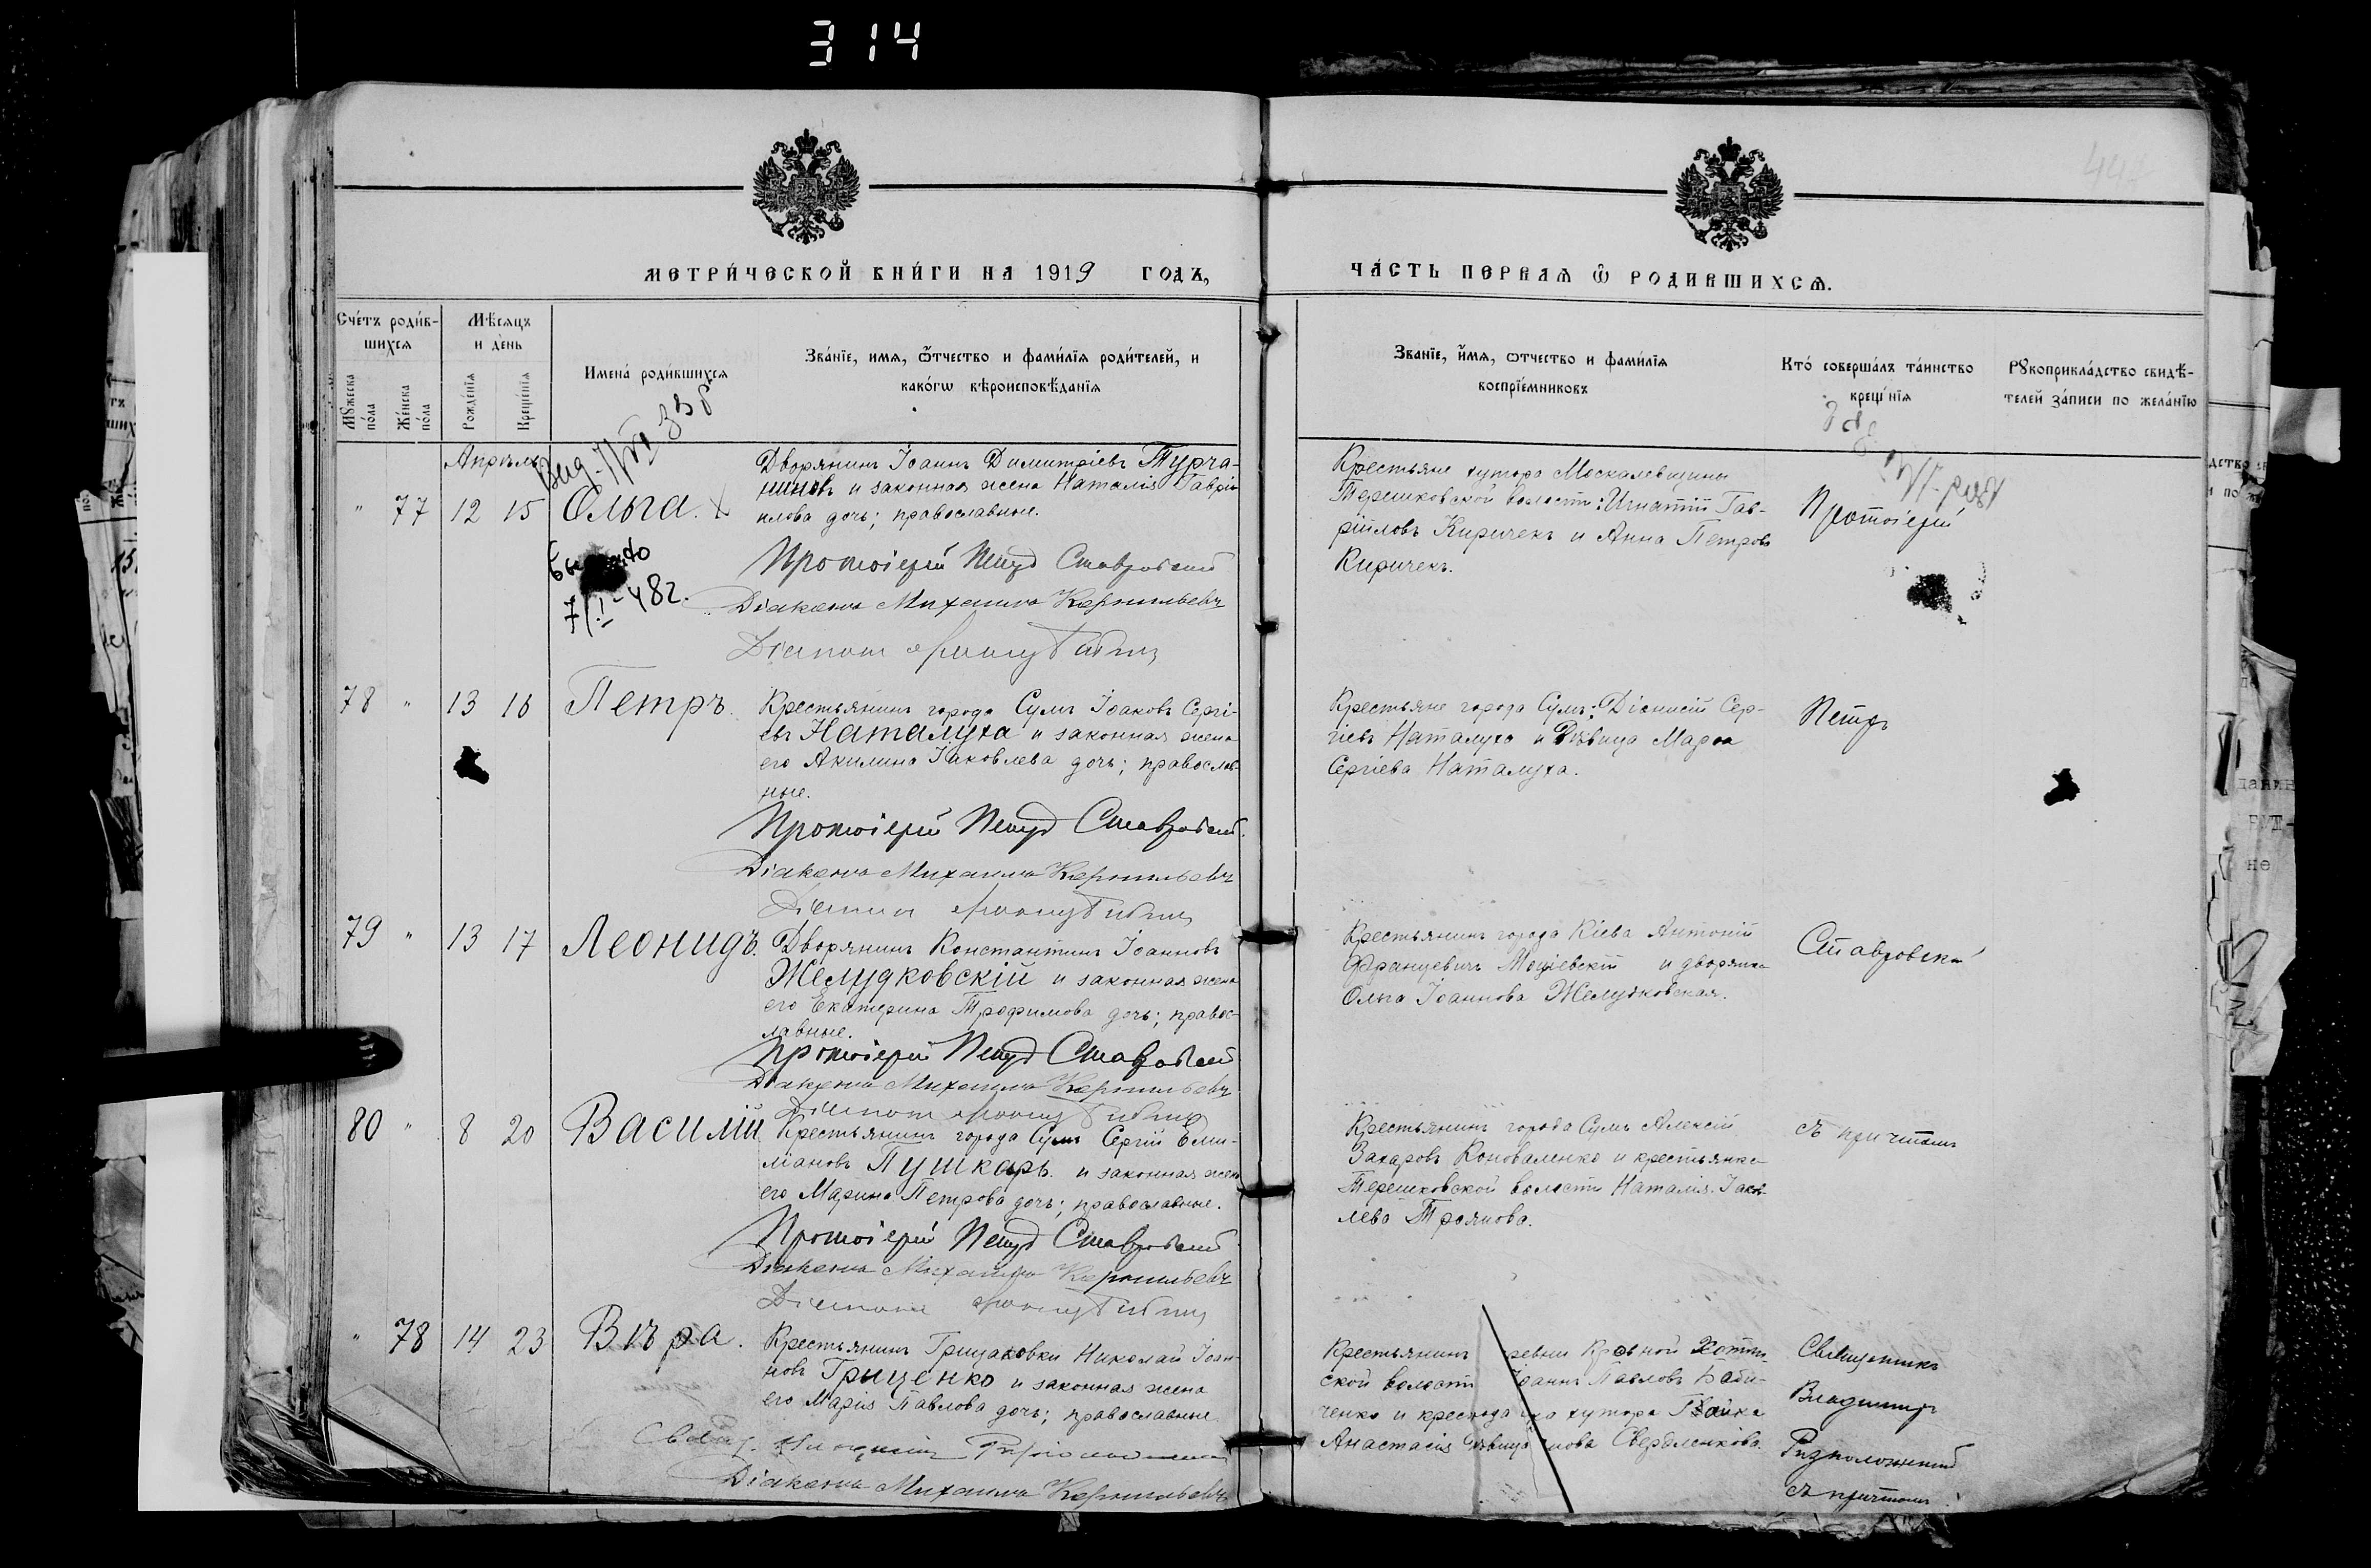 314
44
МЕТРИ́ЧЕСКОЙ КНИ́ГИ НА 1919 ГОДЪ,
ЧА́СТЬ ПЕРВАѦ Ѿ РОДИВШИХСѦ.
Сче́тъ роди́в-
шихсѧ
Мѣ́сѧцъ
и де́нь
Мꙋ́жеска
по́ла
Же́нска
по́ла
Рожде́нїѧ
Креще́нїѧ
Имена́ роди́вшихсѧ
Зва́нїе, имѧ, ѻ́тчество и фами́лїѧ роди́телей, и
како́гѡ вѣроисповѣ́данїѧ
Званїе, и́мѧ, ѻтчество и фами́лїѧ
воспрїе́мниковъ
Кто́ соверша́лъ та́инство
креще́нїѧ
Рꙋкоприкла́дство свидѣ́-
телей за́писи по жела́нїю
Апрѣль
" 77 12 15 Ольга.
Дворянинъ Іоаннъ Димитріевъ Турча-
ниновъ и законная жена Наталія Гаврі-
илова дочь; православные.
Протоіерей Петръ Ставровскій
Діаконъ Михаилъ Корнильевъ
7/I-48г.
Крестьяне хутора Москалевщины
Терешковской волости: Игнатій Гав-
рііловъ Киричекъ и Анна Петров
Киричекъ.
Протоіерей
78 " 13 16 Петръ.
Крестьянинъ города Сумъ Іаковъ Сергі-
евъ Наталуха и законная жена
его Акилина Іаковлева дочь; православ-
ные.
Протоіерей Петръ Ставровскій.
Діаконъ Михаилъ Корнильевъ
Крестьяне города Сумъ: Діонисій Сер-
гіевъ Наталуха и Дѣвица Марѳа
Сергіева Наталуха.
Петръ
79 " 13 17 Леонидъ.
Дворянинъ Константинъ Іоанновъ
Желудковскій и законная жена
его Екатерина Трофимова дочь; правос-
лавные.
Протоіерей Петръ Ставровскій
Діаконъ Михаилъ Корнильевъ
Крестьянинъ города Кіева Антоній
Францевичъ и дворянка
Ольга Іоаннова Желудковская.
Ставровскій
80 " 8 20 Василій
Крестьянинъ города Сумъ Сергій Еми-
ліановъ Пушкарь и законная жена
его Марина Петрова дочь; православные.
Протоіерей Петръ Ставровскій
Діаконъ Михаилъ Корнильевъ
Крестьянинъ города Сумъ Алексій
Захаровъ Коноваленко и крестьянка
Терешковской волости Наталія Іаков-
лева Троянова.
съ причтомъ
" 78 14 23 Вѣра.
Крестьянинъ Николай Іоан-
новъ Гриценко и законная жена
его Марія Павлова дочь; православные.
Діаконъ Михаилъ Корнильевъ
Крестьянинъ
ской волости Іоаннъ Павловъ Баби-
ченко и хутора
Анастасія
Священникъ
Владимиръ
Ризположенскій
съ причтомъ.